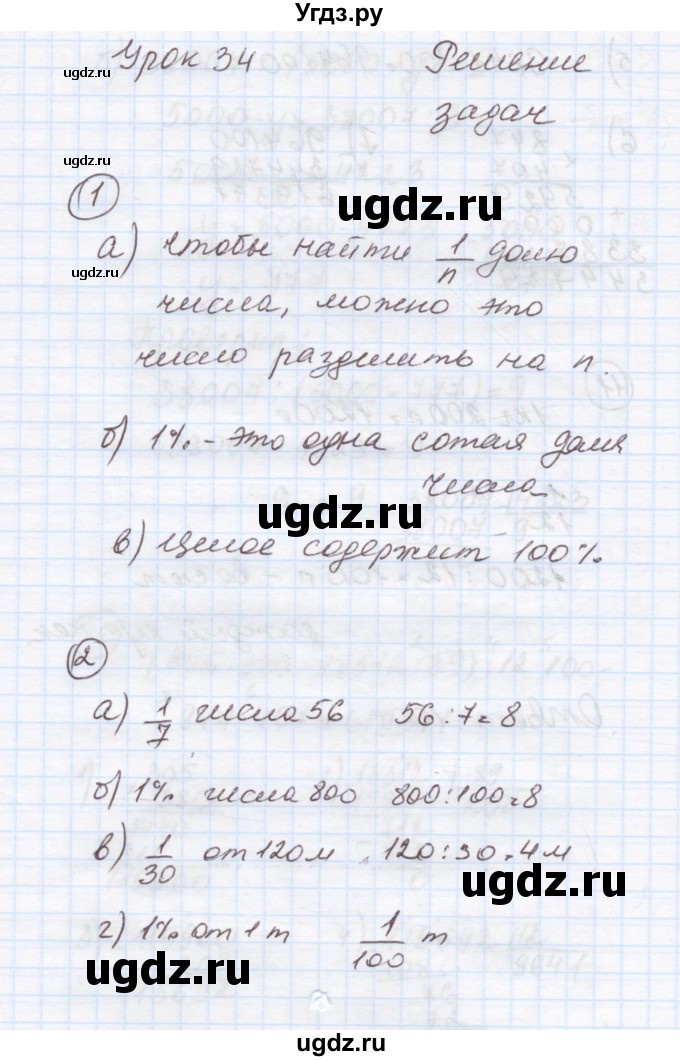 Угдз.ру
Урок 34 Решение
задач
1
а) Чтобы найти 1/n долю
числа, можно это
число разделить на n.
б) 1% - это одна сотая доля
числа
в) Целое содержит 100%
2
а) 1/7 числа 56 56:7=8
б) 1% числа 800 800:100=8
в) 1/30 от 120 м 120:30=4 м
г) 1% от 1 т 1/100 т
ugdz.ru
ugdz.ru
ugdz.ru
ugdz.ru
ugdz.ru
ugdz.ru
ugdz.ru
ugdz.ru
ugdz.ru